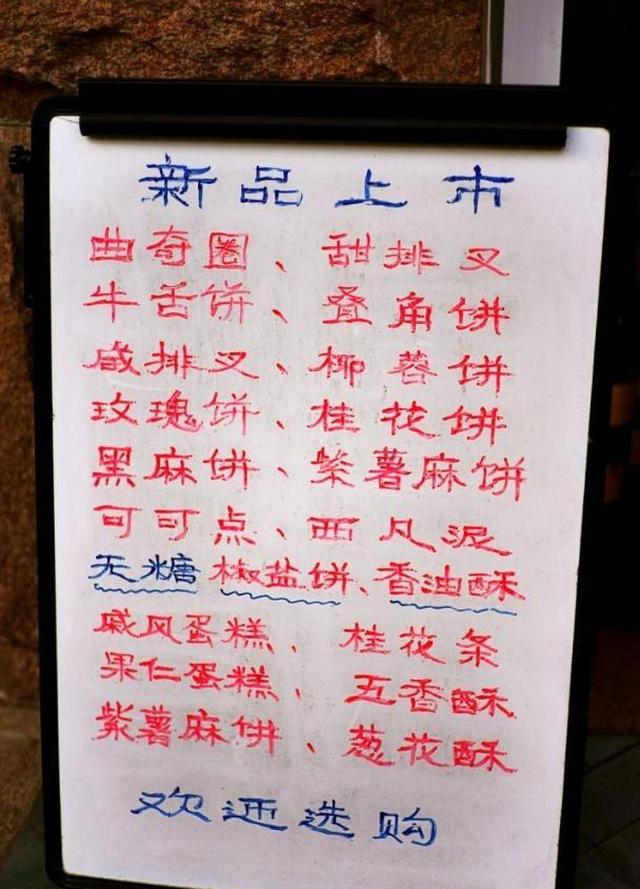 新品上市
曲奇圈、甜排叉
牛舌饼、叠角饼
咸排叉、椰蓉饼
玫瑰饼、桂花饼
黑麻饼、紫薯麻饼
可可点、西凡泥
无糖椒盐饼、香油酥
戚风蛋糕、桂花条
果仁蛋糕、五香酥
紫薯麻饼、葱花酥
欢迎选购